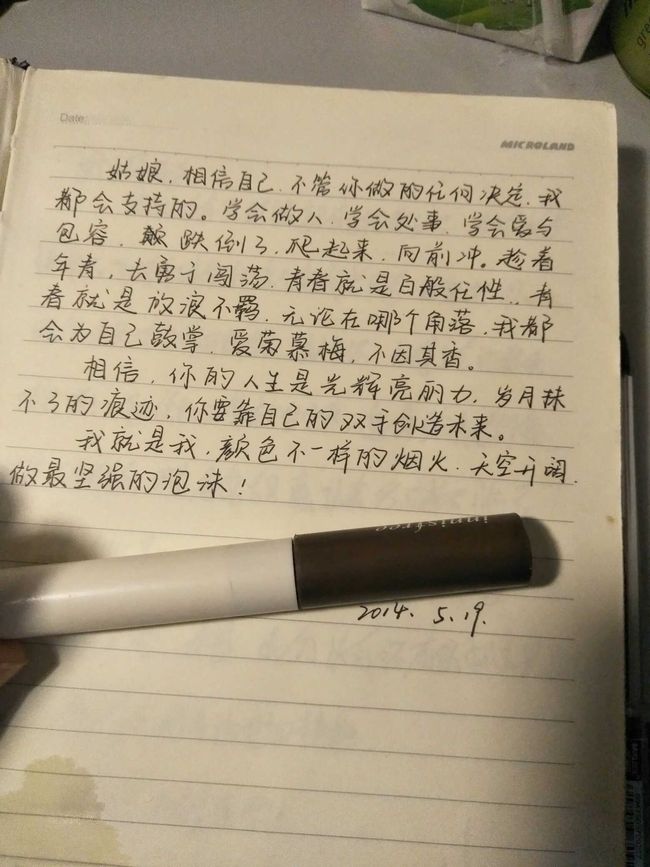 Date:
MICROLAND
姑娘，相信自己，不管你做的任何决定，我
都会支持的。学会做人，学会处事，学会爱与
包容，跌倒了，爬起来，向前冲。趁着
年青，去勇于闯荡，青春就是百般任性，青
春就是放浪不羁，无论在哪个角落，我都
会为自己鼓掌，爱菊慕梅，不因其香。
相信，你的人生是光辉亮丽力，岁月抹
不了的痕迹，你要靠自己的双手创造未来。
我就是我，颜色不一样的烟火，天空开阔，
做最坚强的泡沫！
innisfree
2014. 5.19.